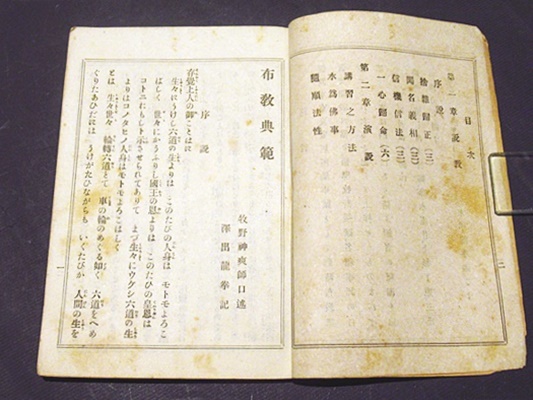 目次
第一章 説教
序説
捨雑歸正（三）
聞名義相（三）
信機信法（三）
一心歸命（六）
第二章 演説
講習之方法
水爲佛事
隨順法性
二
布教典範
牧野神爽師口述
澤出龍奉記
序説
存覺上人の御ことばに
生々にうけし六道の生よりは このたびの人身は モトモよろこ
ばしく 世々にかうふりし國王の恩よりは このたひの皇恩は
コトニおもしト示させられてありて まづ生々ニウクシ六道の生
よりはコノタヒノ人身はモトモよろこばしく
とは 生々世々 輪轉六道とて 車の輪のめぐる如く 六道をへめ
ぐりたあひだには うけがたひながらも いくたびか 人間の生を
一